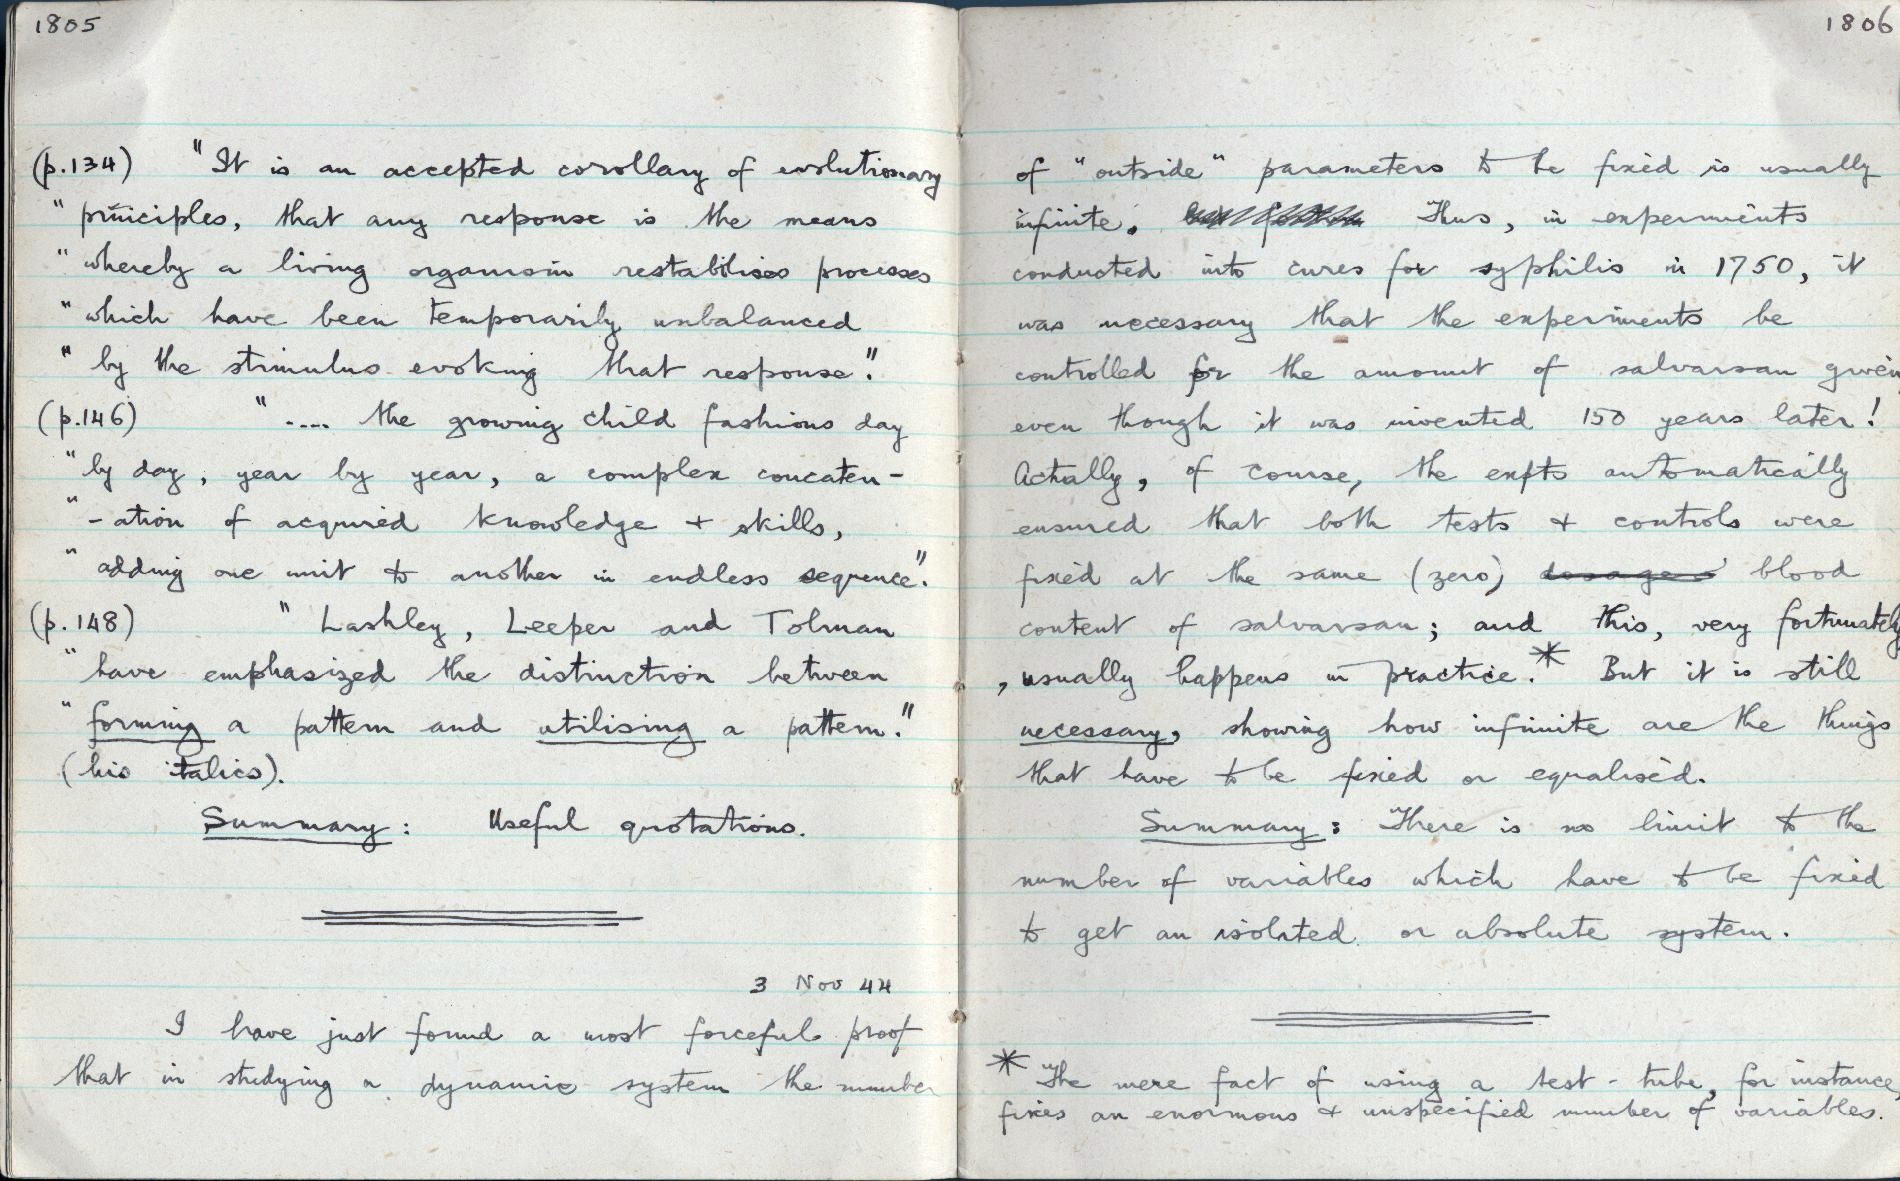 1805
(p.134) "It is an accepted corollary of evolutionary
" principles, that any response is the means
" whereby a living organism restabilises processes
" which have been temporarily unbalanced
" by the stimulus evoking that response."
(p.146) ".... the growing child fashions day
" by day, year by year, a complex concaten-
" -ation of acquired knowledge + skills,
" adding one unit to another in endless sequence".
(p.148) " Lashley, Leeper and Tolman
" have emphasized the distinction between
" forming a pattern and utilising a pattern."
(his italics).
Summary: Useful quotations.
3 Nov 44
I have just found a most forceful proof
that in studying a dynamic system the number
1806
of "outside" parameters to be fixed is usually
infinite. Thus, in experiments
conducted into cures for syphilis in 1750, it
was necessary that the experiments be
controlled for the amount of salvarsan given
even though it was invented 150 years later!
Actually, of course, the expts automatically
ensured that both tests + controls were
fixed at the same (zero) dosages blood
content of salvarsan; and this, very fortunately
, usually happens in practice.* But it is still
necessary, showing how infinite are the things
that have to be fixed or equalised.
Summary: There is no limit to the
number of variables which have to be fixed
to get an isolated or absolute system.
* The mere fact of using a test-tube, for instance,
fixes an enormous + unspecified number of variables.